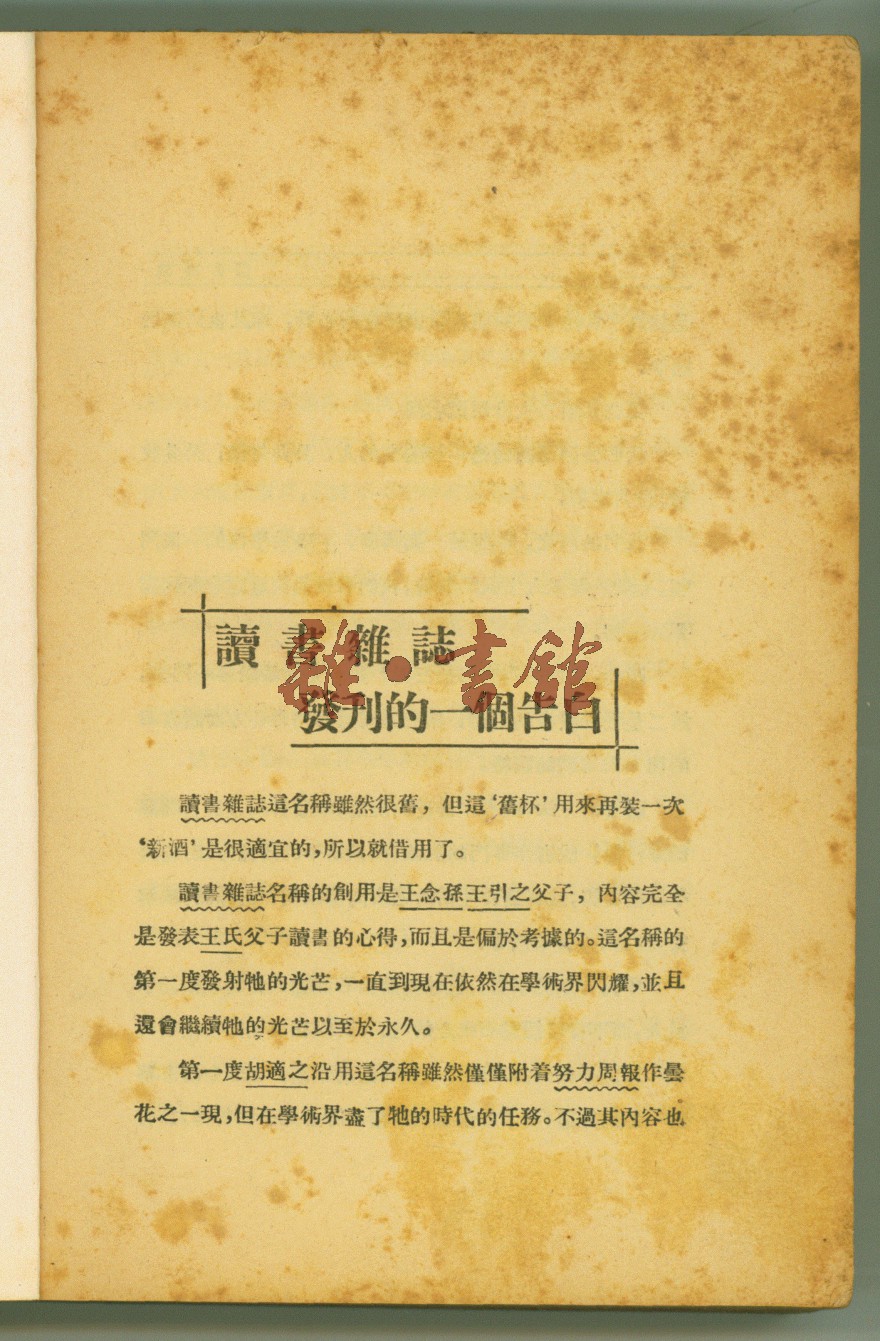 讀書雜誌
發刊的一個告白
雜·書館
讀書雜誌這名稱雖然很舊，但這‘舊杯’用來再裝一次
‘新酒’是很適宜的，所以就借用了。
讀書雜誌名稱的創用是王念孫王引之父子，內容完全
是發表王氏父子讀書的心得，而且是偏於考據的。這名稱的
第一度發射牠的光芒，一直到現在依然在學術界閃耀，並且
還會繼續牠的光芒以至於永久。
第一度胡適之沿用這名稱雖然僅僅附着努力周報作曇
花之一現，但在學術界盡了牠的時代的任務。不過其內容也